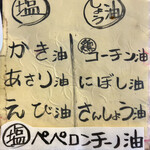 塩
しょう油
かき油
あさり油
えび油
コーチン油
にぼし油
さんしょう油
塩 ペペロンチーノ油